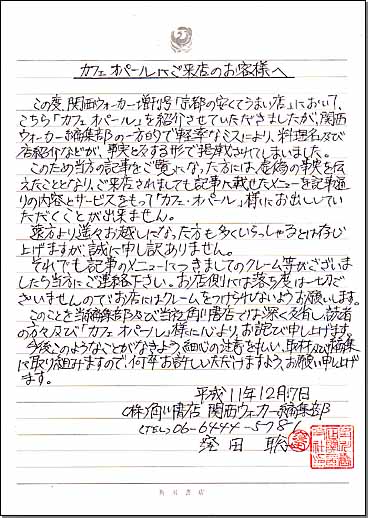 カフェオパールにご来店のお客様へ
この度、関西ウォーカー増刊号「京都の安くてうまい店」において、
こちら「カフェオパール」を紹介させていただきましたが、関西
ウォーカー編集部の一方的で軽率なミスにより、料理名及び
店紹介などが、事実と反する形で掲載されてしまいました。
このため当方の記事をご覧になった方には、虚偽の事実を伝
えたこととなり、ご来店されましても記事へ載せたメニューを記事通り
の内容とサービスをもって「カフェ・オパール」様にお出ししてい
ただくことが出来ません。
遠方より遥々お越しになった方も多くいらっしゃるとは存じ
上げますが、誠に申し訳ありません。
それでも記事のメニューにつきましてのクレーム等がございま
したら当方にご連絡下さい。お店側には落ち度は一切ご
ざいませんのでお店にはクレームをつけられないようお願いします。
このことを当編集部及び当社角川書店では深く反省し、読者
の方々及び「カフェオパール」様に心より、お詫び申し上げます。
今後このようなことがなきよう、細心の注意を払い、取材及び編集
に取り組みますので、何卒お許しいただけますよう、お願い申し上げ
ます。
平成11年12月17日
(株)角川書店 関西ウォーカー編集部
(TEL)06-6444-5786
田 聡
角川書店